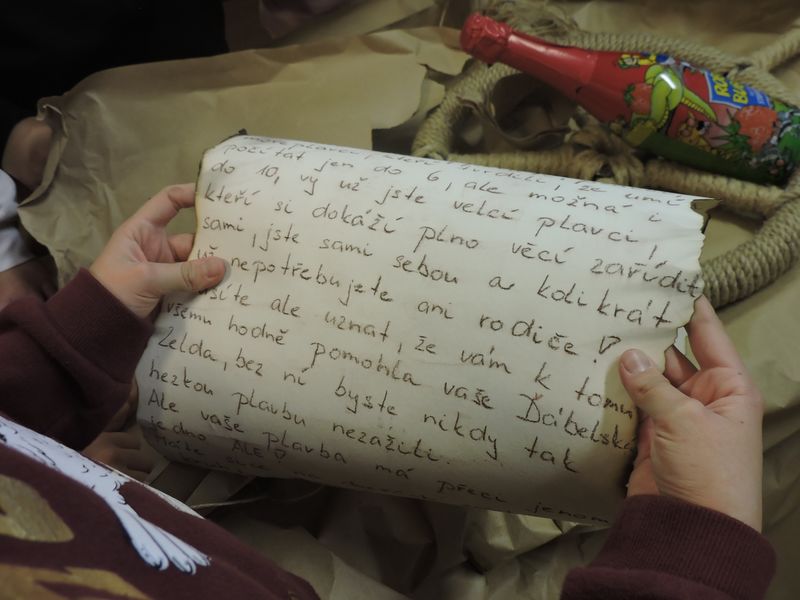 počítat jen do 6, ale možná i
do 10, vy už jste velcí plavci!
kteří si dokáží plno věcí zařídit
sami, jste sami sebou a kolikrát
už nepotřebujete ani rodiče!
ale uznat, že vám k tomu
všemu hodně pomohla vaše Ďábelská
Zelda, bez ní byste nikdy tak
hezkou plavbu nezažili.
Ale vaše plavba má přeci jenom
jedno ALE!